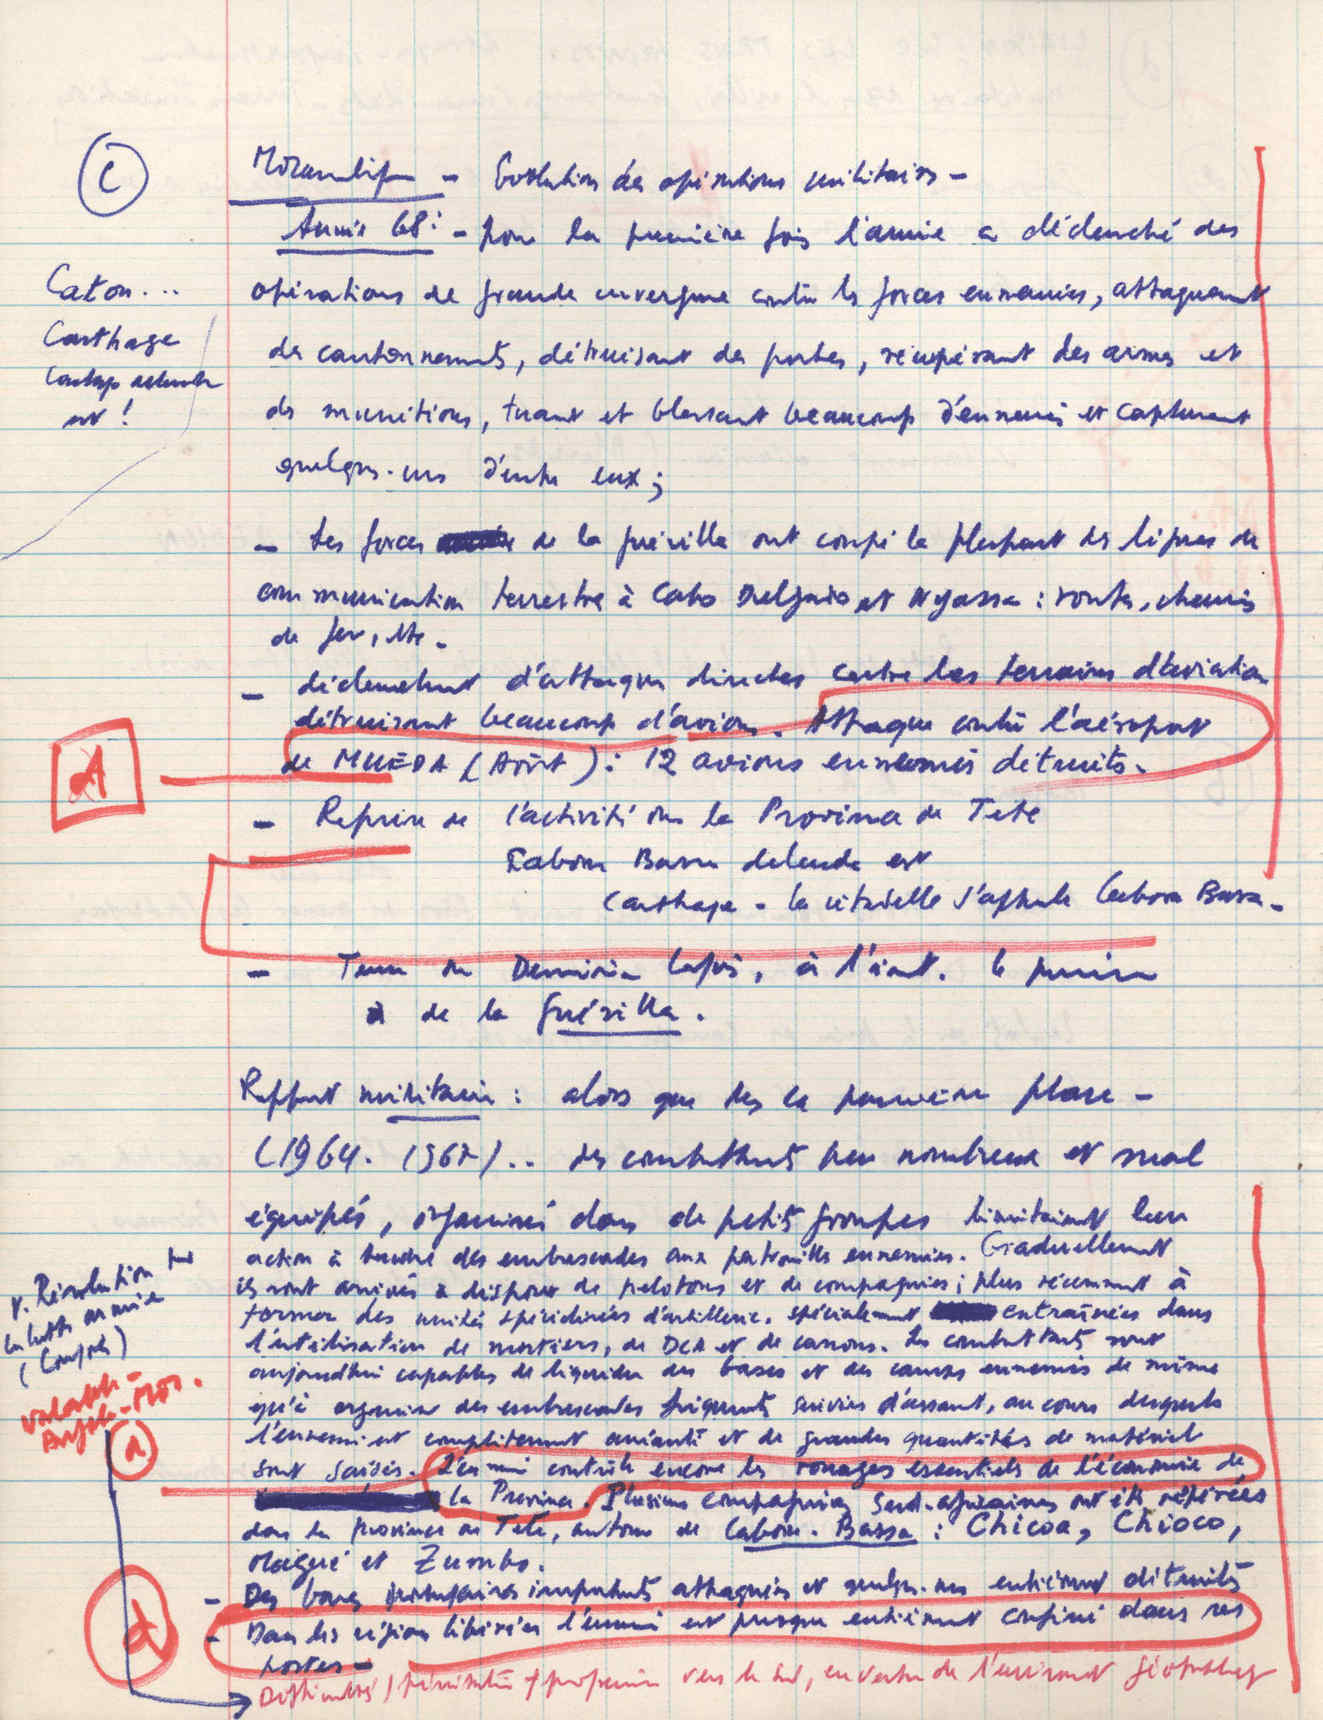 C
Mozambique - Evolution des opérations militaires -
Année 68 : - pour la première fois l'armée a déclenché des
Caton...
opérations de grande envergure contre les forces ennemies, attaquant
Carthage
des cantonnements, détruisant des postes, récupérant des armes et
est !
des munitions, tuant et blessant beaucoup d'ennemis et capturant
quelques-uns d'entre eux ;
- Les forces de la guérilla ont coupé la plupart des lignes de
communication terrestre à Cabo Delgado et Nyassa : routes, chemins
de fer, etc.
- déclenchent d'attaques directes contre les terrains d'aviation
détruisant beaucoup d'avions. Attaque contre l'aéroport
A
de MUEDA (Août) : 12 avions ennemis détruits.
- Reprise de l'activité dans la Province de Tete
Cabora Bassa delenda est
Carthage - la citadelle s'appelle Cabora Bassa -
- Tenue du Deuxième Congrès, à l'int.
de la guérilla.
Rapport militaire : alors que dès la première phase -
(1964. 1967) .. des combattants peu nombreux et mal
équipés, organisés dans de petits groupes limitaient leur
action à tendre des embuscades aux patrouilles ennemies. Graduellement
ils sont arrivés à disposer de pelotons et de compagnies ; plus récemment à
v. Révolution
former des unités spécialisées d'artillerie, spécialement entraînées dans
la lutte armée
l'utilisation de mortiers, de DCA et de canons. Les combattants sont
(Congrès)
aujourd'hui capables de liquider des bases et des camps ennemis de même
qu'à organiser des embuscades fréquentes suivies d'assaut, au cours desquels
l'ennemi est complètement anéanti et de grandes quantités de matériel
sont saisies. L'ennemi contrôle encore les rouages essentiels de l'économie de
la Province. Plusieurs compagnies sud-africaines ont été repérées
dans la province de Tete, autour de Cabora-Bassa : Chicoa, Chioco,
Magué et Zumbo.
- Des bases portugaises importantes attaquées et quelques-unes entièrement détruites
d
- Dans les régions libérées l'ennemi est presque entièrement confiné dans ses
postes -
Difficultés vers le sud, en vertu de l'environt géopolitiq